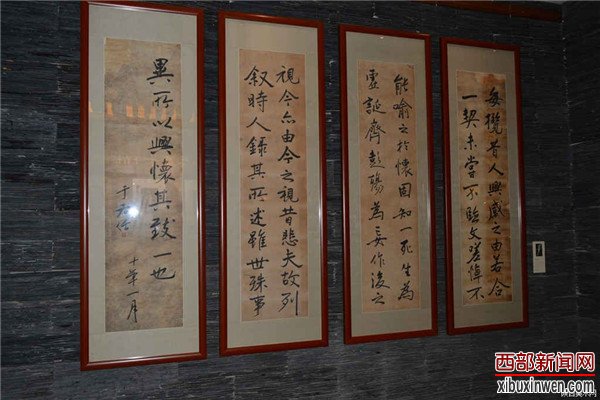 每攬昔人興感之由若合
一契未嘗不臨文嗟悼不
能喻之於懷固知一死生為
虛誕齊彭殤為妄作後之
視今亦由今之視昔悲夫故列
敘時人錄其所述雖世殊事
異所以興懷其致一也
于右任
十年一月
西部新闻网
xibuxinwen.com